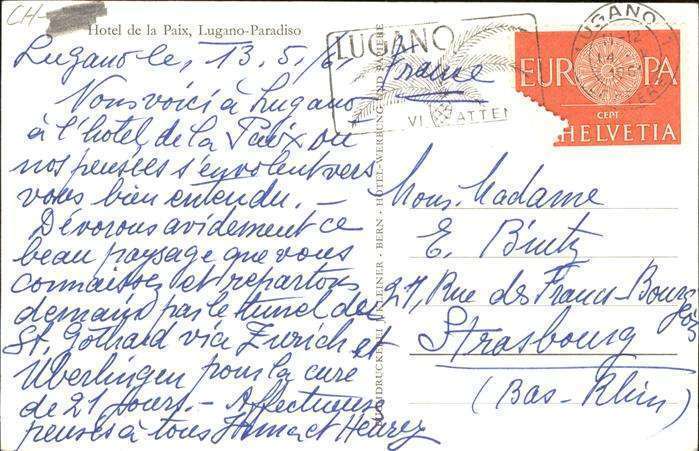 CH-
Hotel de la Paix, Lugano-Paradiso
Lugano le, 13.5.61
Nous voici à Lugano
à l'hôtel de la Paix ou
nos pensées s'envolent vers
vous bien entendu. —
Dévorons avidement ce
beau paysage que vous
connaissez et repartons
demain par le tunnel du
St. Gothard via Zurich et
Überlingen pour la cure
de 21 jours. — Affectueuses
pensées à tous et Henry
LUGANO
VI ATTEN
LUGANO 1
11-12
14
1961
EUROPA
CEPT
HELVETIA
France
Mons. Madame
E. Bintz
27, Rue des Francs-Bourgeois
Strasbourg
(Bas-Rhin)
KLEINER - BERN - HOTEL-WERBUNG UND PAPIERE